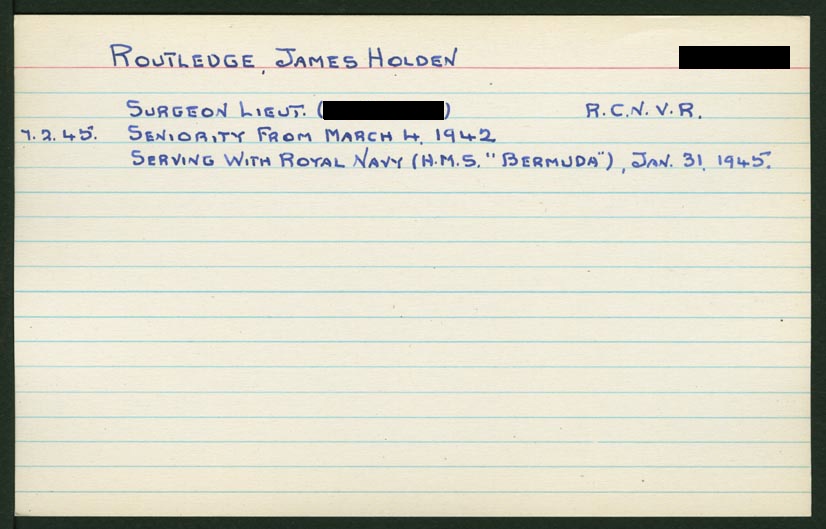 ROUTLEDGE, JAMES HOLDEN
SURGEON LIEUT. ( ) R.C.N.V.R.
7.2.45. SENIORITY FROM MARCH 4, 1942
SERVING WITH ROYAL NAVY (H.M.S. "BERMUDA"), JAN. 31, 1945.